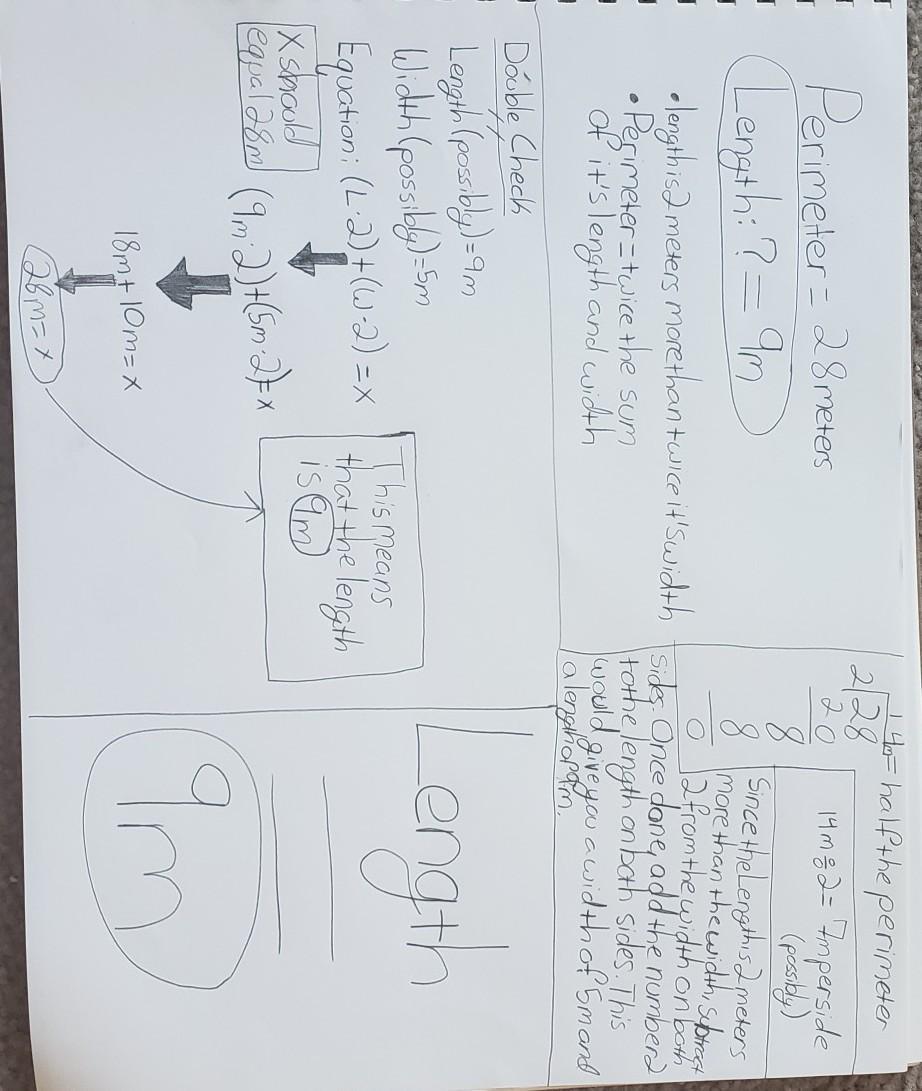 Perimeter = 28 meters
Length: ? = 9m
• length is 2 meters more than twice it's width
• Perimeter = twice the sum
of it's length and width
14m = half the perimeter
2√28
20
8
8
0
14m ÷ 2 = 7m per side
(possibly)
Since the Length is 2 meters
more than the width, subtract
2 from the width on both
sides. Once done, add the number 2
to the length on both sides. This
would give you a width of 5m and
a length of 9m.
Double Check
Length (possibly) = 9m
Width (possibly) = 5m
Equation: (L·2) + (W·2) = x
X should
equal 28m
(9m·2) + (5m·2) = x
18m + 10m = x
28m = x
This means
that the length
is 9m
Length
=
9m